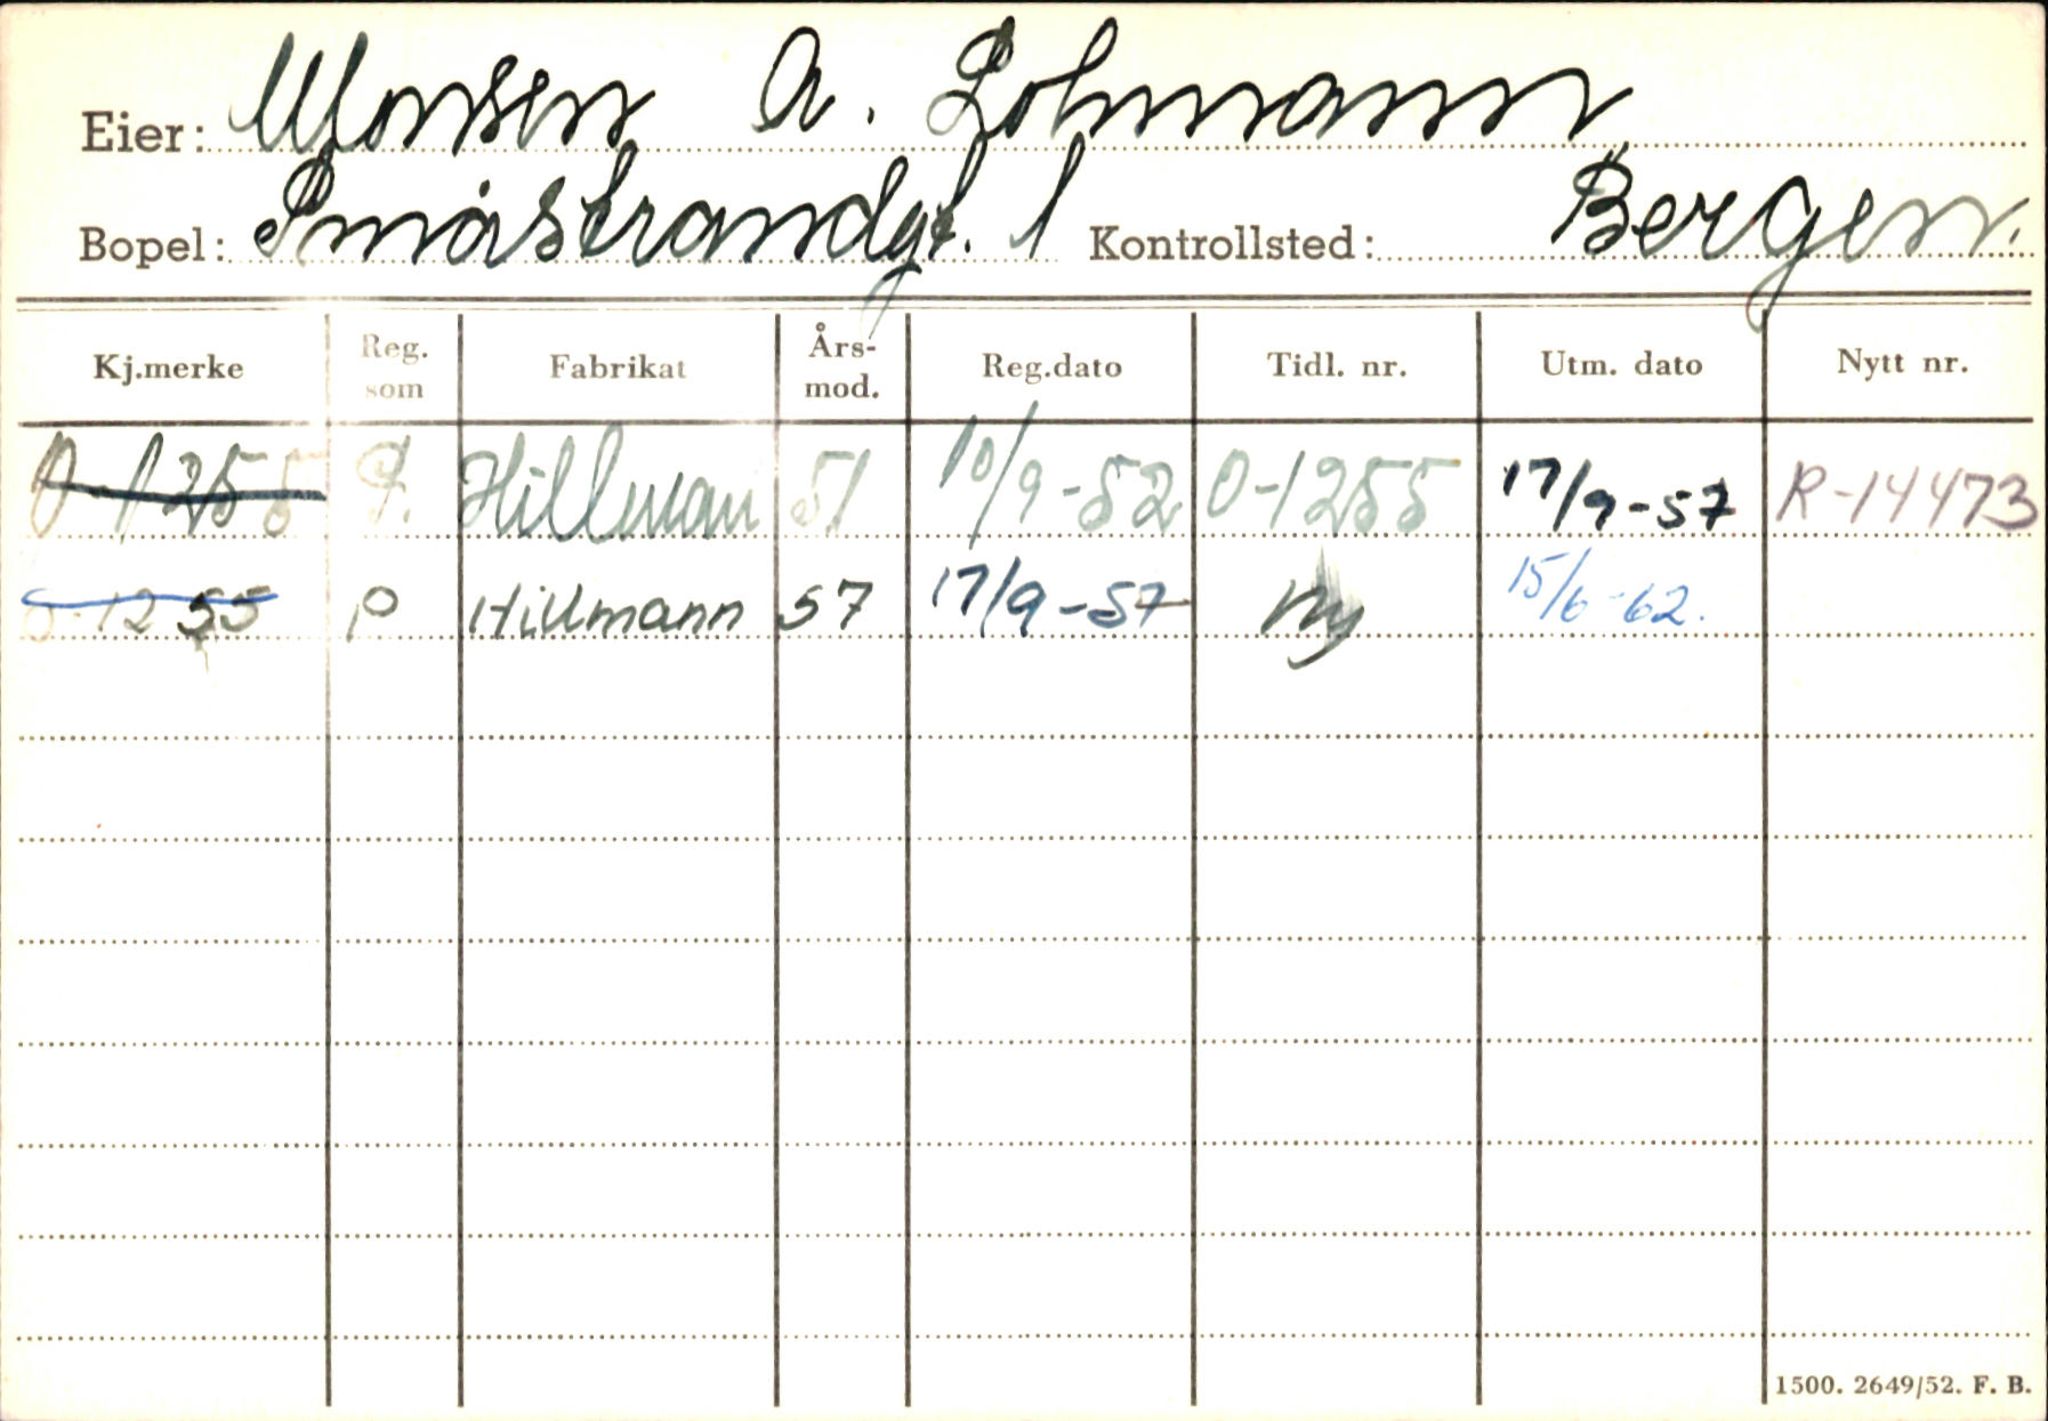 Eier: Monsen A. Lohmann
Bopel: Småstrandgt. 1 Kontrollsted: Bergen.
Kj.merke Reg. som Fabrikat Års-mod. Reg.dato Tidl. nr. Utm. dato Nytt nr.
O-1255 P. Hillman 51 10/9-52 O-1255 17/9-57 R-14473
O-1255 P Hillmann 57 17/9-57 Ny 15/6-62.
1500. 2649/52. F. B.